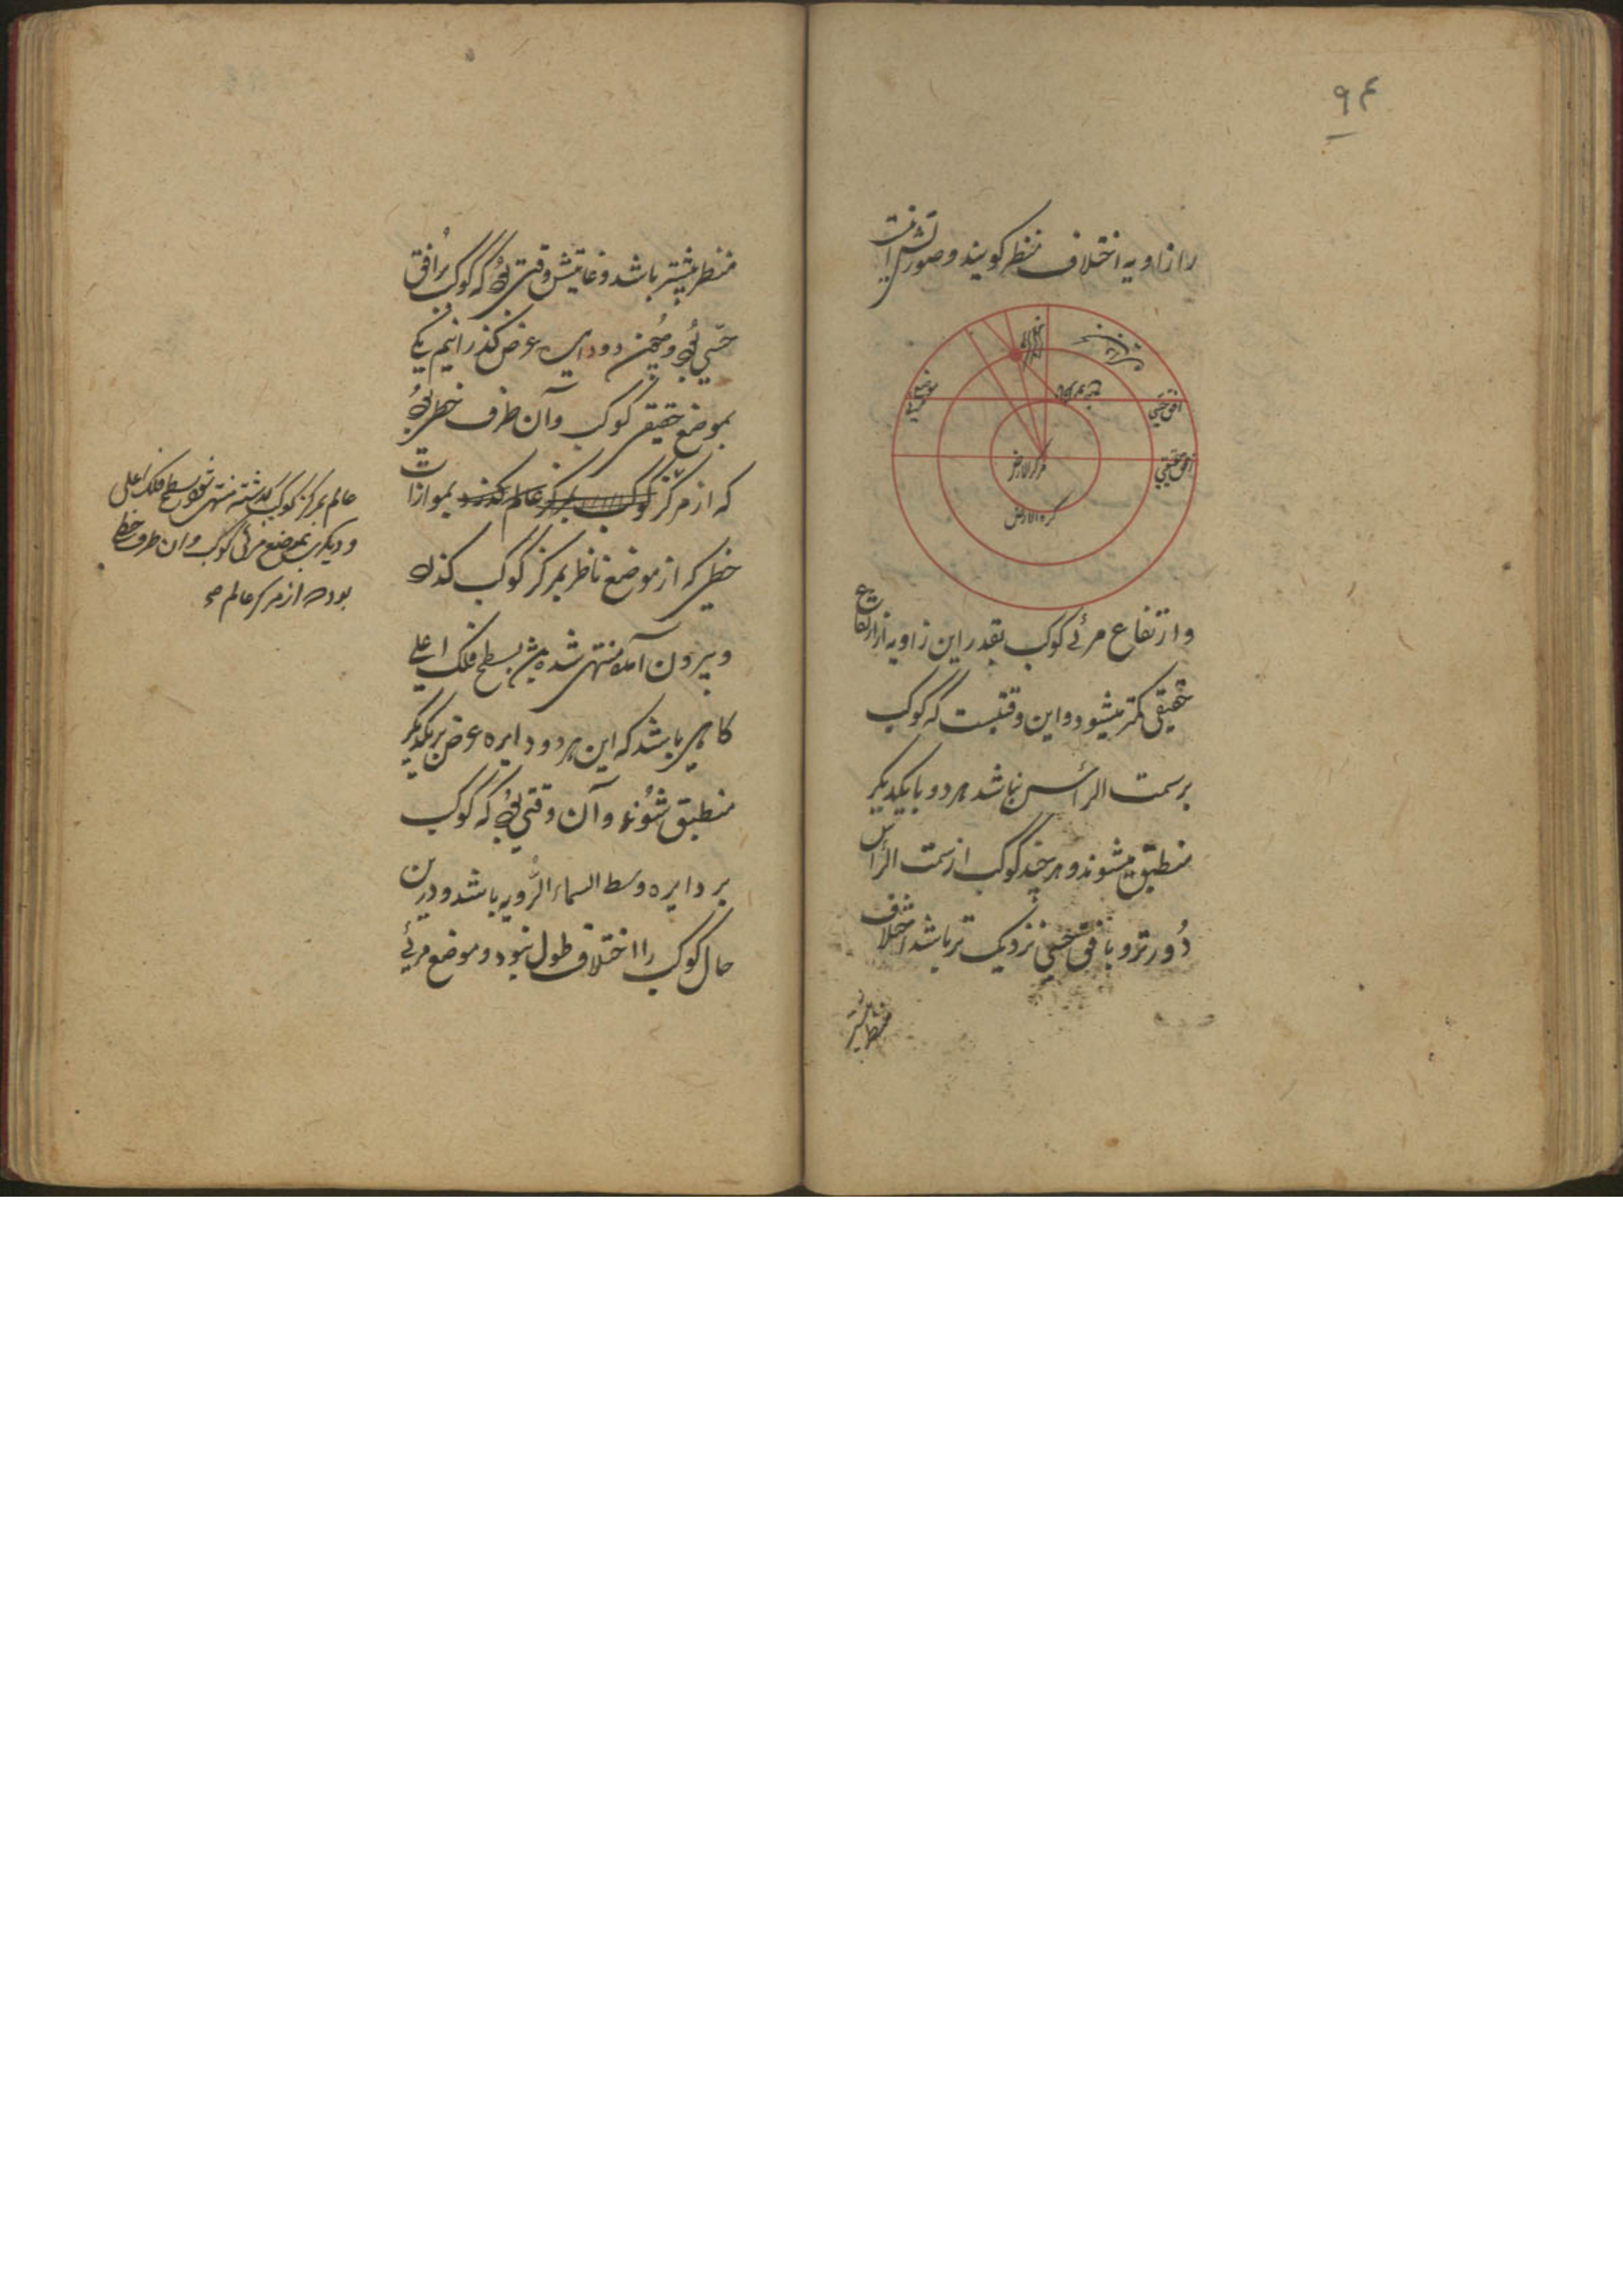 ۹۴
را زاویه اختلاف منظر کویند و صورتش اینست
افق حسی
افق حقیقی
مرکز الارض
کره الارض
و ارتفاع مرئے کوکب بقدر این زاویه از ارتفاع
حقیقی کمتر میشود و این وقتیست که کوکب
بر سمت الرأس نباشد هر دو با یکدیکر
منطبق میشوند و هر چند کوکب از سمت الرأس
دُور تر و بافق حسّی نزدیک تر باشد اختلاف
منظر بیشتر
منظر بیشتر باشد و غایتش وقتی بُود که کوکب بر اُفق
حسّی بُود و همچنین دو دایره عرض کذرانیم یکے
بموضع حقیقی کوکب و آن طرف خطی بُود
که از مرکز کوکب بمرکز عالم کذرد بموازات
خطی که از موضع ناظر بمرکز کوکب کذرد
و بیرون آمده منتهی شده بسطح فلک اعلے
کاهی باشد که این هر دو دایره عرض بر یکدیکر
منطبق شوند و آن وقتی بُود که کوکب
بر دایره وسط السماء الرُّویه باشد و درین
حال کوکب را اختلاف طول نبود و موضع مرئے
عالم بمرکز کوکب کذشته منتهی شود بسطح فلک اعلی
و دیکری بموضع مرئی کوکب و ان طرف خط
بود که از مرکز عالم صح